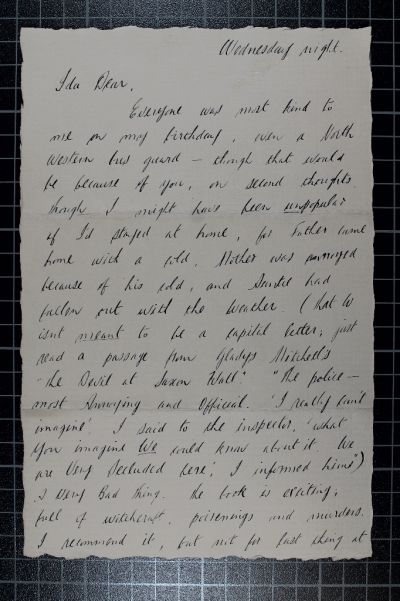 Wednesday night.
Ida Dear,
Everyone was most kind to
me on my birthday, even a North
Western bus guard – though that would
be because of you, on second thoughts.
Though I might have been unpopular
if I'd stayed at home, for Father came
home with a cold, Mother was annoyed
because of his cold, and Auntie had
fallen out with the Weather. (That W
isnt meant to be a capital letter; just
read a passage from Gladys Mitchell's
"The Devil at Saxon Wall". "The police –
most Annoying and Official. 'I really can't
imagine'. I said to the inspector, 'what
you imagine We could know about it. We
are Very Secluded here', I informed him")
A Very Bad thing. The book is exciting;
full of witchcraft, poisonings and murders.
I recommend it, but not for last thing at